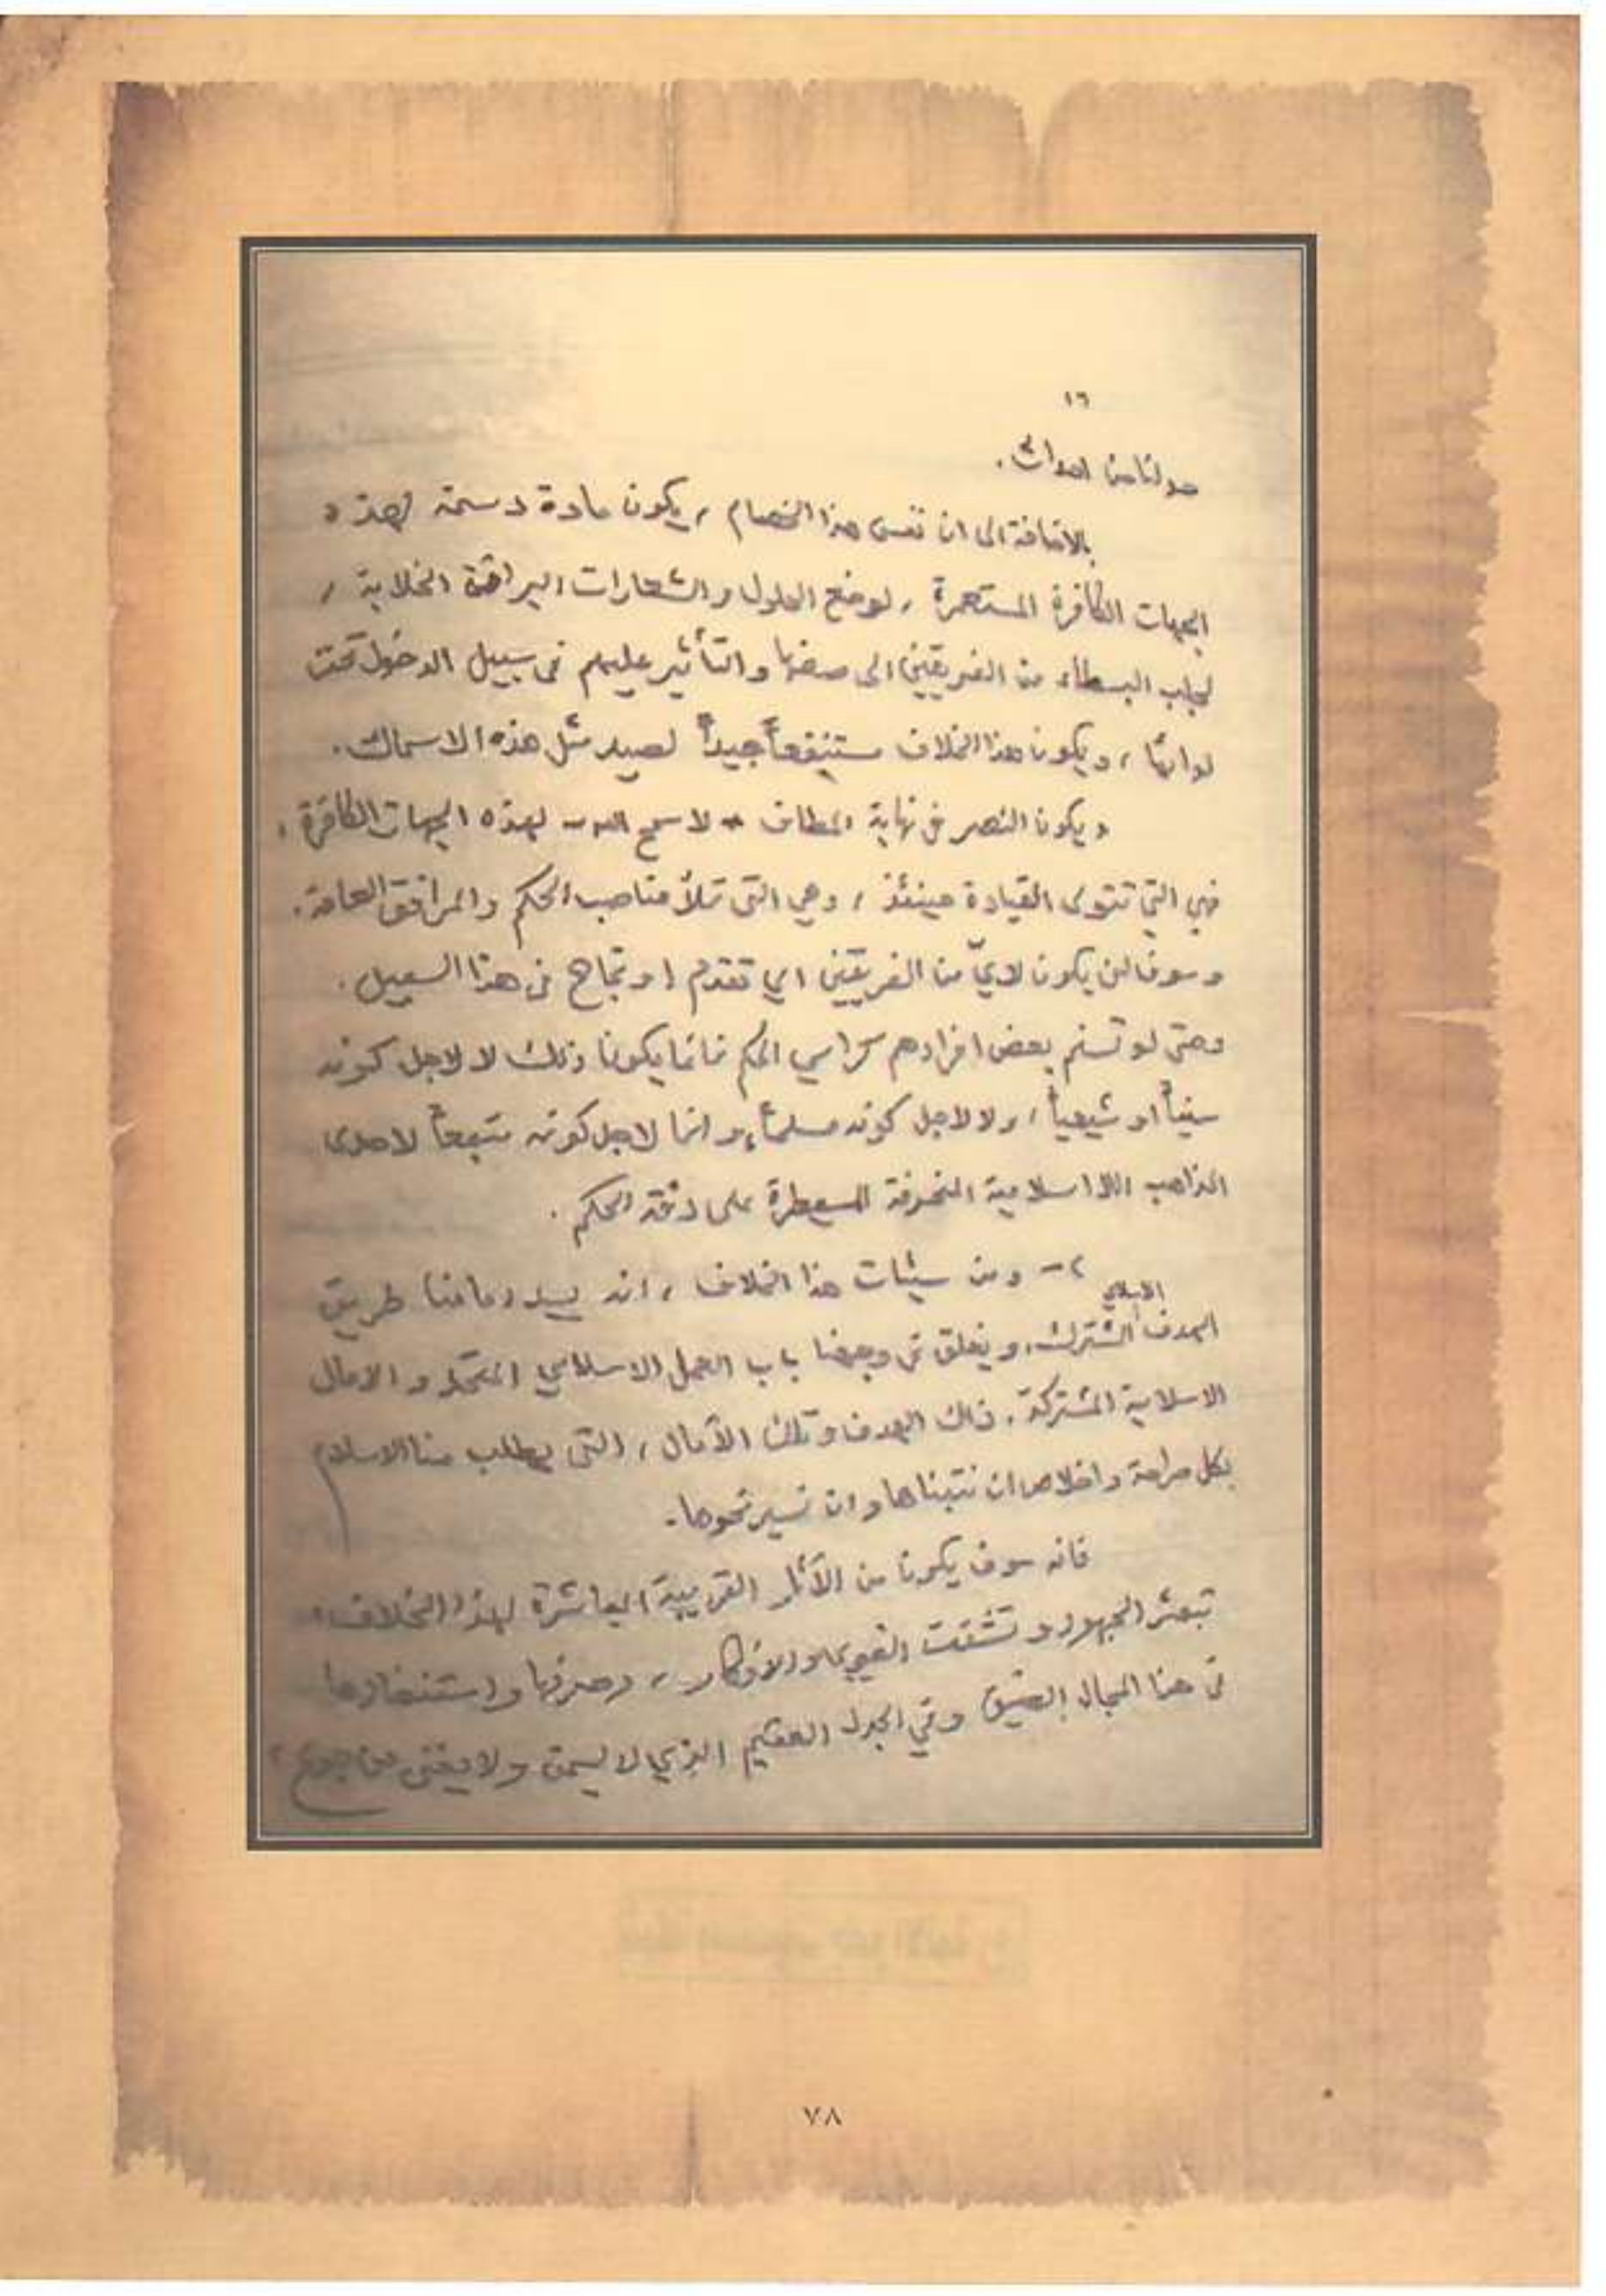 ١٦
حولنا من احداث.
بالاضافة الى ان نفس هذا الخصام ، يكون مادة دسمة لهذه
الجهات الكافرة المستعمرة ، لوضع الحلول والشعارات البراقة الخلابة ،
لجلب البسطاء من الفريقين الى صفها والتأثير عليهم في سبيل الدخول تحت
لوائها ، ويكون هذا الخلاف مستنقعاً جيداً لصيد مثل هذه الاسماك.
ويكون النصر في نهاية المطاف - لا سمح الله - لهذه الجهات الكافرة ،
فهي التي تتولى القيادة حينئذ ، وهي التي تملأ مناصب الحكم والمرافق العامة.
وسوف لن يكون لايّ من الفريقين اي تقدم او نجاح في هذا السبيل.
وحتى لو تسنم بعض افرادهم كراسي الحكم فانما يكون ذلك لا لاجل كونه
سنياً او شيعياً ، ولا لاجل كونه مسلماً، وانما لاجل كونه متبعاً لاحدى
المذاهب اللااسلامية المنحرفة المسيطرة على دفة الحكم.
٢- ومن سيئات هذا الخلاف ، انه يسد امامنا طريق
الهدف الاسلامي المشترك، ويغلق في وجهنا باب العمل الاسلامي المتحد والآمال
الاسلامية المشتركة. ذلك الهدف وتلك الآمال ، التي يطلب منا الاسلام
بكل صراحة واخلاص ان نتبناها وان نسير نحوها.
فانه سوف يكون من الآثار القريبة المباشرة لهذا الخلاف،
تبعثر الجهود وتشتت القوى والافكار ، وصرفها واستنفادها
في هذا المجال الضيق وفي الجدل العقيم الذي لا يسمن ولا يغني من جوع ،
٧٨